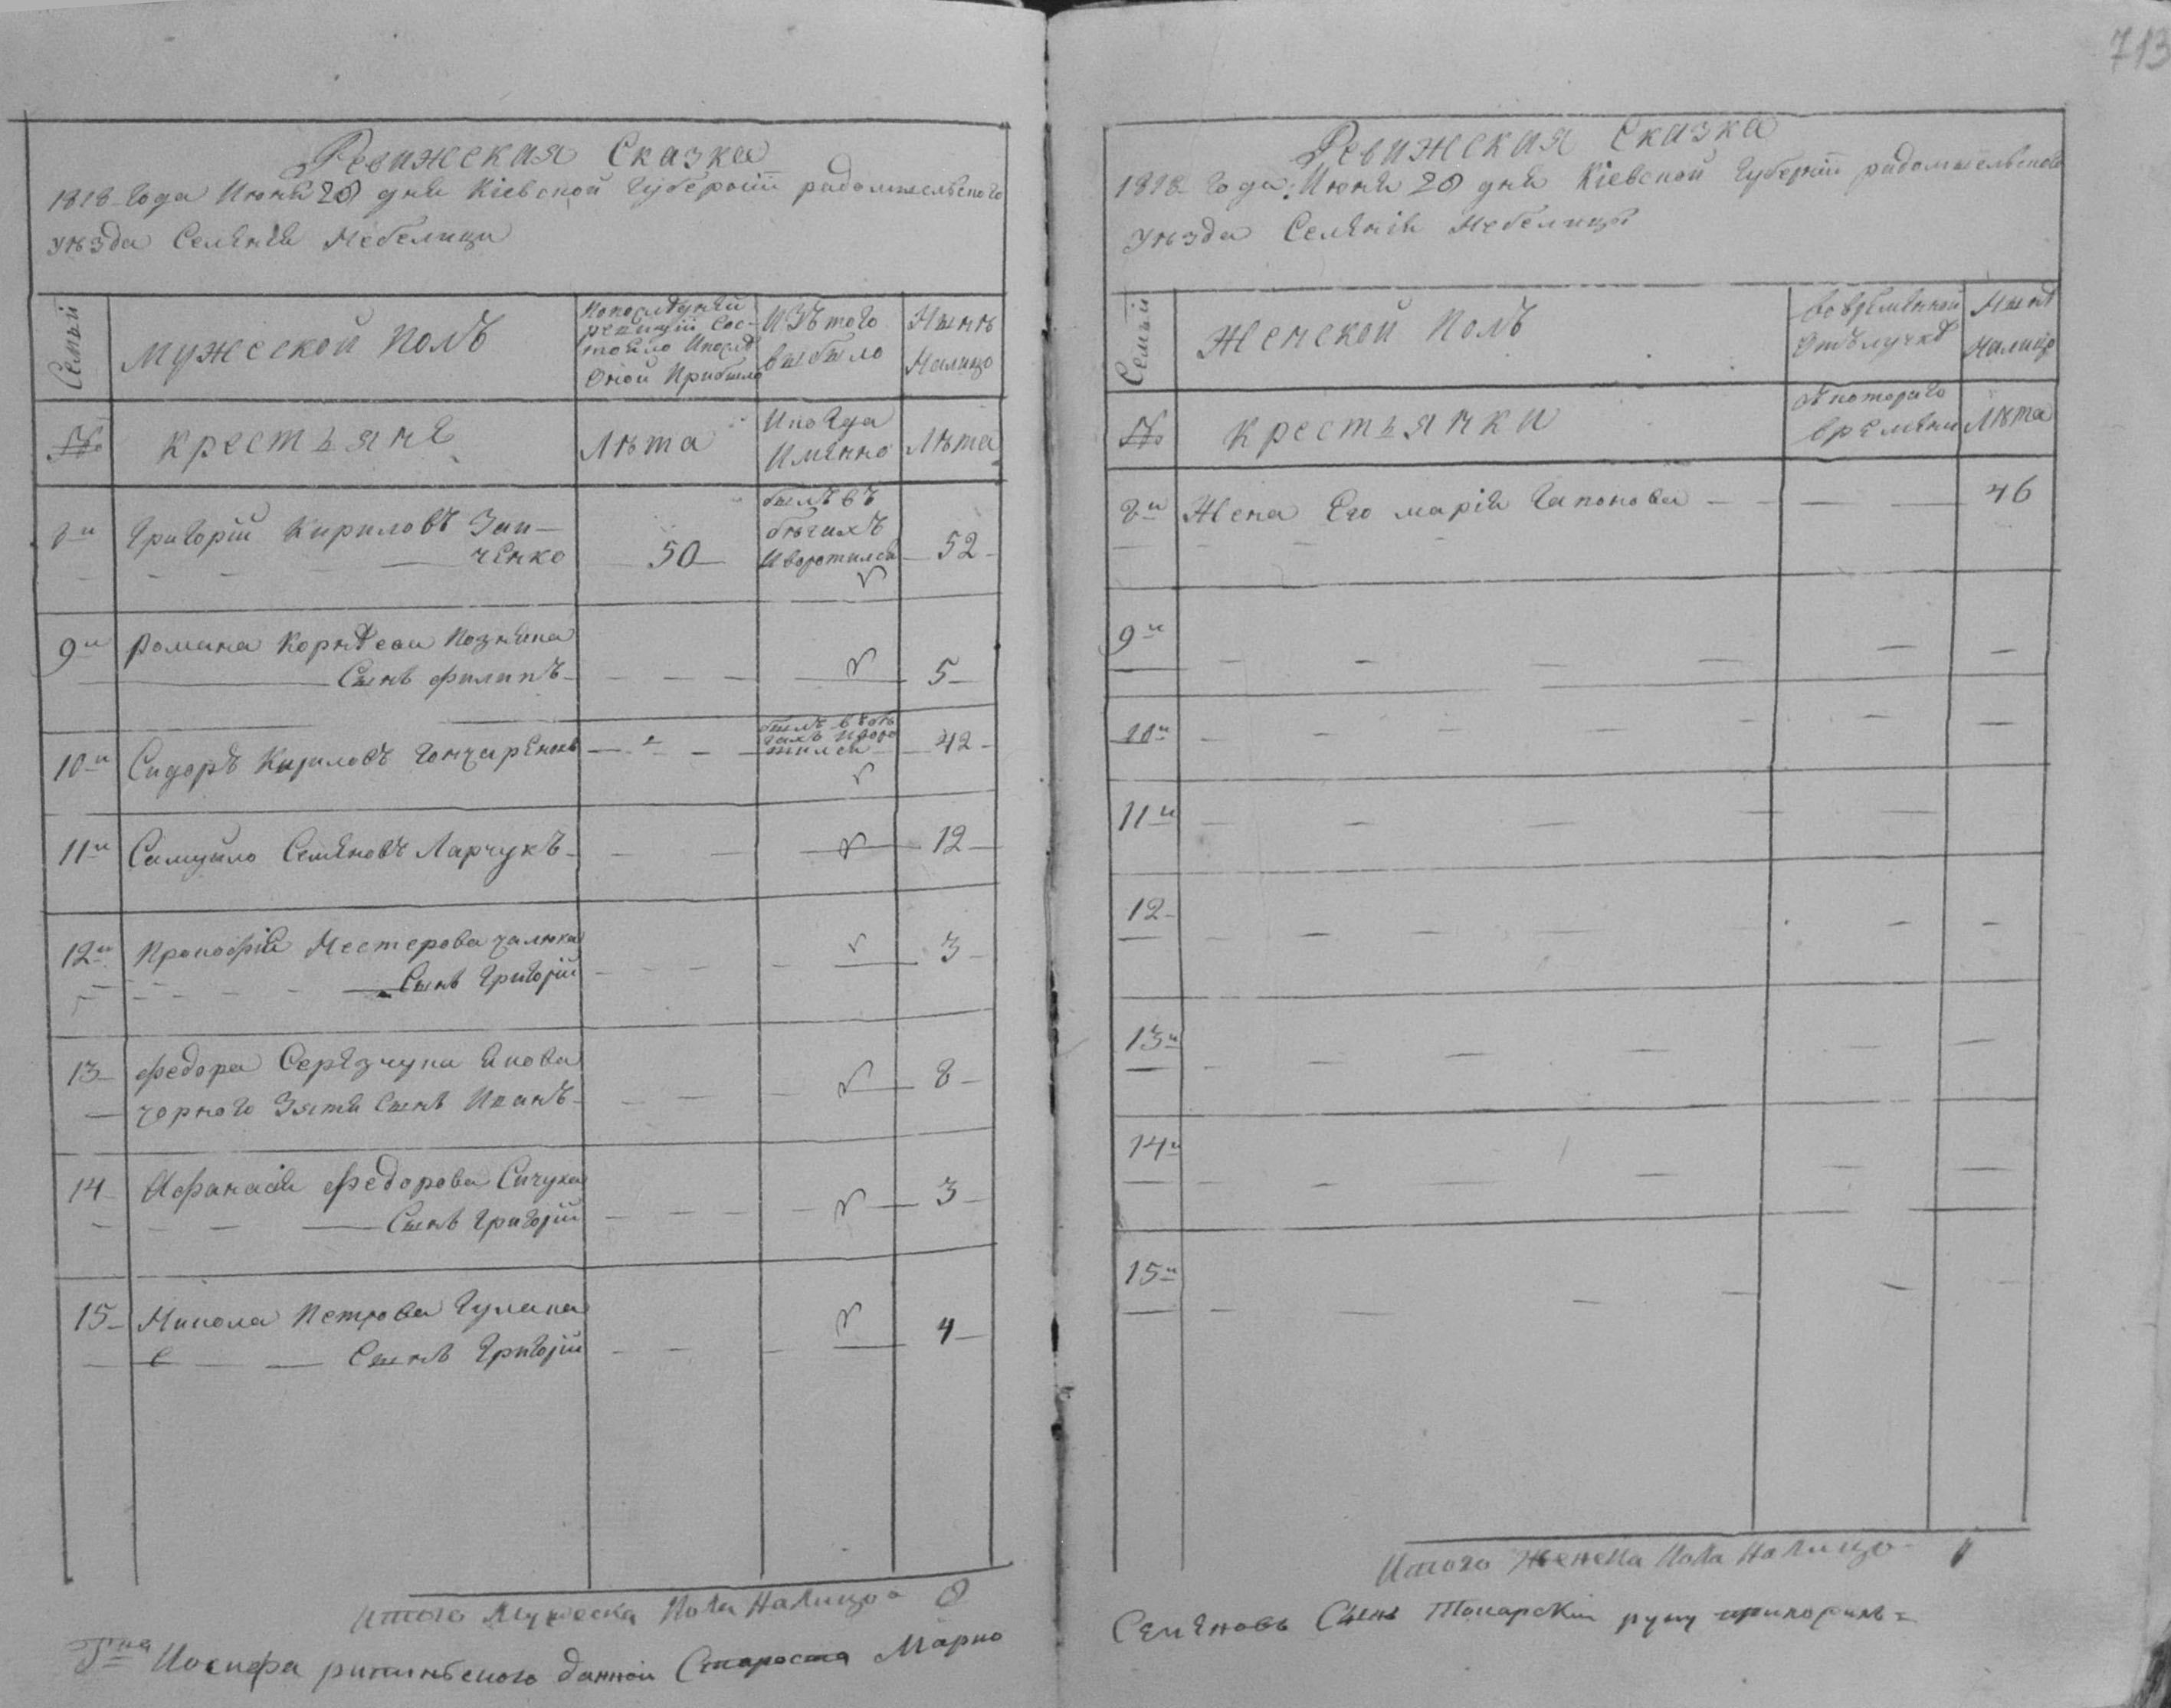 713
Ревижская Сказка
1818 Года Июня 20 дня Кіевской Губерніи радомысльского
уѣзда Селенія Небелици
Семьи
Мужеской Полъ
Попоследуней
ревизіи Сос-
тояло Ипослѣ
Оной Прибыло
Изъ того
выбыло
Нынѣ
Налицо
№
крестьяне
Лѣта
Икогда
Именно
Лѣта
8й
Григорій Кириловъ Зин-
ченко
50
былъ въ
бѣгахъ
Иворотился
52
9й
Романа Корнѣева Позняка
Сынъ Филипъ
5
10й
Сидоръ Кириловъ Гончаренокъ
былъ въ бѣ
гахъ Иворо
тился
42
11й
Самуйло Семеновъ Ларчукъ
12
12й
Прокофія Нестерова чалюка
Сынъ Григорій
3
13
Федора Серезчука Якова
чорного Зятя Сынъ Иванъ
8
14
Афанасія Федорова Сичука
Сынъ Григорій
3
15
Никола Петрова Гулака
Сынъ Григорій
4
Итого Мужеска Пола На Лицо 8
Гна Иосифа данной Староста Марко
Ревижская Сказка
1818 Года Июня 20 дня Кіевской Губерніи радомысльского
уѣзда Селенія Небелици
Семьи
Женской Полъ
Вовременной
Отълучкѣ
Нынѣ
Налицо
№
крестьянки
Съ котораго
времени
Лѣта
8й
Жена Его марія Гапонова
46
9й
10й
11й
12
13й
14й
15й
Итого Женска Пола На Лицо 1
Семеновъ Сынъ Токарскій руку приложилъ